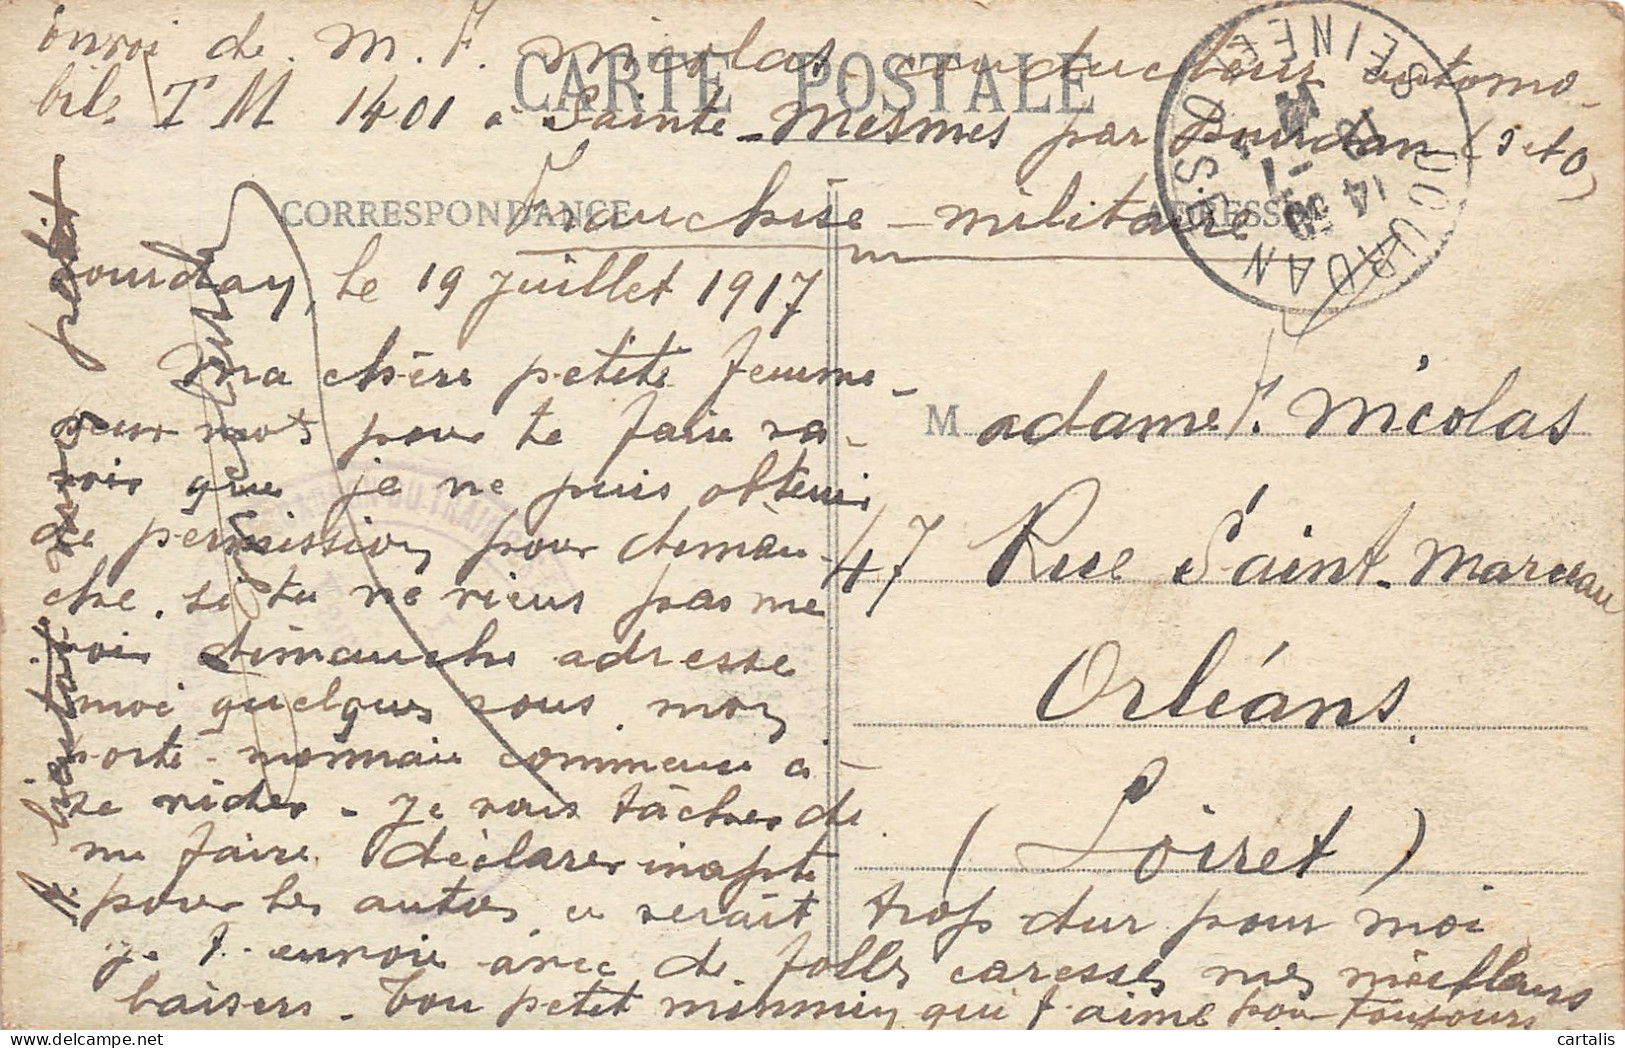 Envoi de M. F. Nicolas conducteur automo-
bile T M 1401 à Sainte-Mesmes par Dourdan (S et O)
CARTE POSTALE
Franchise militaire
CORRESPONDANCE
ADRESSE
DOURDAN SEINE ET OISE
14
Dourdan, le 19 juillet 1917
Ma chère petite femme
deux mots pour te faire sa-
voir que je ne puis obtenir
de permission pour diman-
che. si tu ne viens pas me
voir dimanche adresse
moi quelques sous. mon
porte-monnaie commence à
se vider. Je vais tâcher de
me faire déclarer inapte
pour les autos ce serait trop dur pour moi
je t'envoie avec de folles caresses mes meilleurs
baisers. Ton petit mimmin qui t'aime pour toujours
A bientôt mon petit
Madame F. Nicolas
47 Rue Saint-Marceau
Orléans
(Loiret)
DU TRAIN
cartalis